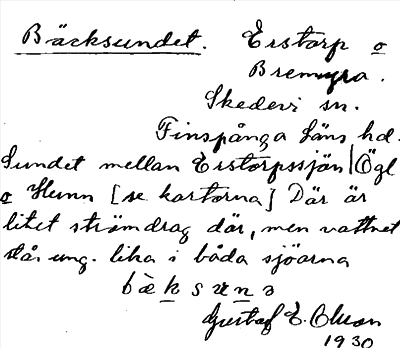 Bäcksundet. Erstorp o
Bremyra.
Skedevi sn.
Finspånga läns hd.
Sundet mellan Erstorpssjön/Ögl
o Hunn [se kartorna] Där är
litet strömdrag där, men vattnet
står ung. lika i båda sjöarna
Gustaf E. Olson
1930